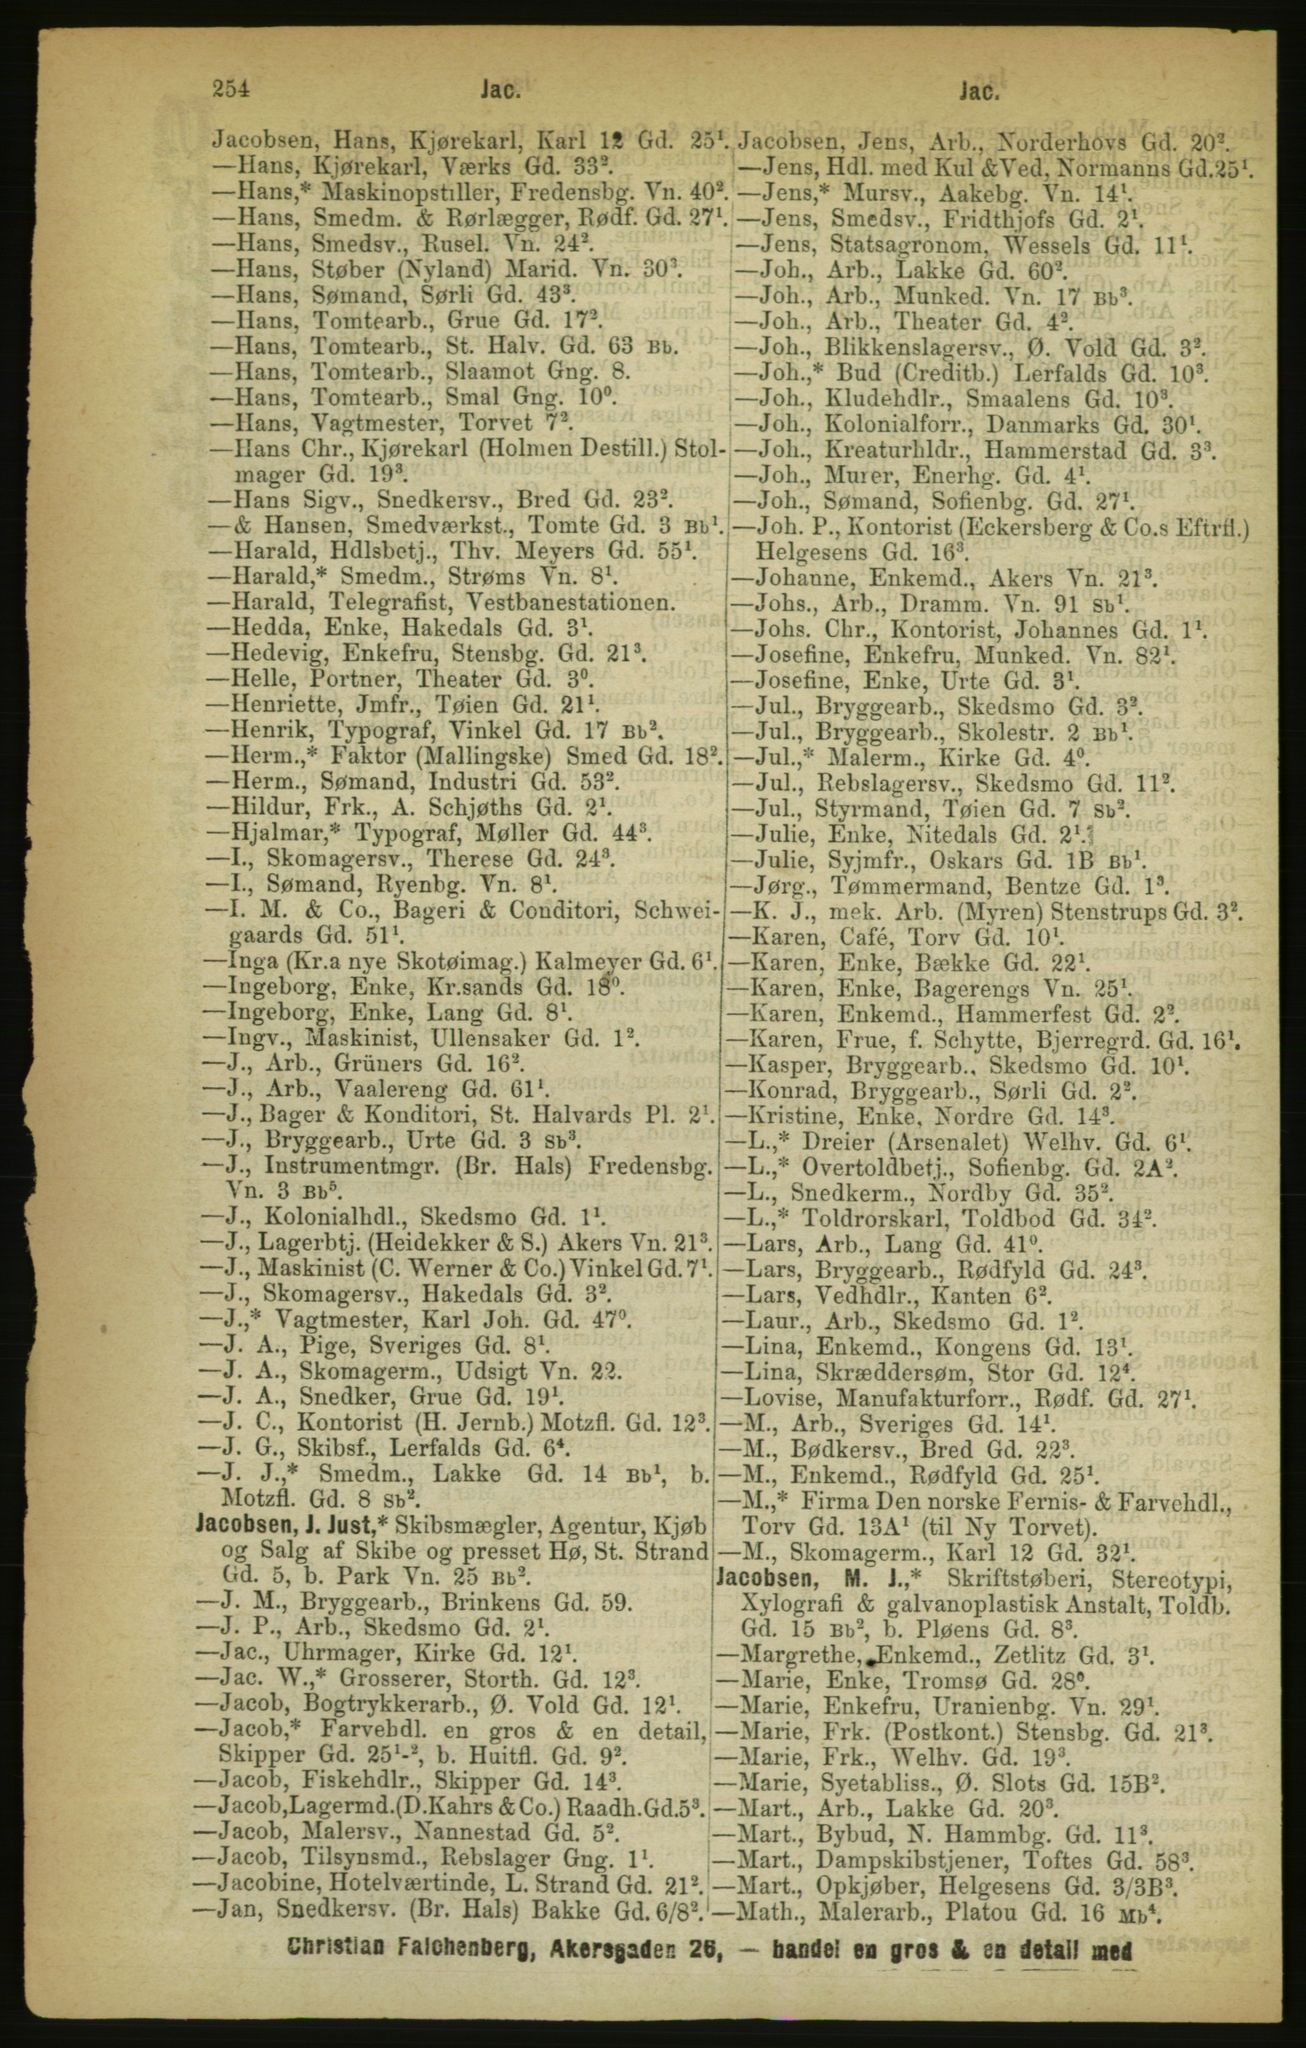 254
Jac.
Jac.
Jacobsen, Hans, Kjørekarl, Karl 12 Gd. 25¹.
—Hans, Kjørekarl, Værks Gd. 33².
—Hans,* Maskinopstiller, Fredensbg. Vn. 40².
—Hans, Smedm. & Rørlægger, Rødf. Gd. 27¹.
—Hans, Smedsv., Rusel. Vn. 24².
—Hans, Støber (Nyland) Marid. Vn. 30³.
—Hans, Sømand, Sørli Gd. 43³.
—Hans, Tomtearb., Grue Gd. 17².
—Hans, Tomtearb., St. Halv. Gd. 63 Bb.
—Hans, Tomtearb., Slaamot Gng. 8.
—Hans, Tomtearb., Smal Gng. 10⁰.
—Hans, Vagtmester, Torvet 7².
—Hans Chr., Kjørekarl (Holmen Destill.) Stol-
mager Gd. 19³.
—Hans Sigv., Snedkersv., Bred Gd. 23².
—& Hansen, Smedværkst., Tomte Gd. 3 Bb¹.
—Harald, Hdlsbetj., Thv. Meyers Gd. 55¹.
—Harald,* Smedm., Strøms Vn. 8¹.
—Harald, Telegrafist, Vestbanestationen.
—Hedda, Enke, Hakedals Gd. 3¹.
—Hedevig, Enkefru, Stensbg. Gd. 21³.
—Helle, Portner, Theater Gd. 3⁰.
—Henriette, Jmfr., Tøien Gd. 21¹.
—Henrik, Typograf, Vinkel Gd. 17 Bb².
—Herm.,* Faktor (Mallingske) Smed Gd. 18².
—Herm., Sømand, Industri Gd. 53².
—Hildur, Frk., A. Schjøths Gd. 2¹.
—Hjalmar,* Typograf, Møller Gd. 44³.
—I., Skomagersv., Therese Gd. 24³.
—I., Sømand, Ryenbg. Vn. 8¹.
—I. M. & Co., Bageri & Conditori, Schwei-
gaards Gd. 51¹.
—Inga (Kr.a nye Skotøimag.) Kalmeyer Gd. 6¹.
—Ingeborg, Enke, Kr.sands Gd. 18⁰.
—Ingeborg, Enke, Lang Gd. 8¹.
—Ingv., Maskinist, Ullensaker Gd. 1².
—J., Arb., Grüners Gd. 16².
—J., Arb., Vaalereng Gd. 61¹.
—J., Bager & Konditori, St. Halvards Pl. 2¹.
—J., Bryggearb., Urte Gd. 3 Sb³.
—J., Instrumentmgr. (Br. Hals) Fredensbg.
Vn. 3 Bb⁵.
—J., Kolonialhdl., Skedsmo Gd. 1¹.
—J., Lagerbtj. (Heidekker & S.) Akers Vn. 21³.
—J., Maskinist (C. Werner & Co.) Vinkel Gd. 7¹.
—J., Skomagersv., Hakedals Gd. 3².
—J.,* Vagtmester, Karl Joh. Gd. 47⁰.
—J. A., Pige, Sveriges Gd. 8¹.
—J. A., Skomagerm., Udsigt Vn. 22.
—J. A., Snedker, Grue Gd. 19¹.
—J. C., Kontorist (H. Jernb.) Motzfl. Gd. 12³.
—J. G., Skibsf., Lerfalds Gd. 6⁴.
—J. J.,* Smedm., Lakke Gd. 14 Bb¹, b.
Motzfl. Gd. 8 Sb².
Jacobsen, J. Just,* Skibsmægler, Agentur, Kjøb
og Salg af Skibe og presset Hø, St. Strand
Gd. 5, b. Park Vn. 25 Bb².
—J. M., Bryggearb., Brinkens Gd. 59.
—J. P., Arb., Skedsmo Gd. 2¹.
—Jac., Uhrmager, Kirke Gd. 12¹.
—Jac. W.,* Grosserer, Storth. Gd. 12³.
—Jacob, Bogtrykkerarb., Ø. Vold Gd. 12¹.
—Jacob,* Farvehdl. en gros & en detail,
Skipper Gd. 25¹-², b. Huitfl. Gd. 9².
—Jacob, Fiskehdlr., Skipper Gd. 14³.
—Jacob, Lagermd. (D. Kahrs & Co.) Raadh. Gd. 5³.
—Jacob, Malersv., Nannestad Gd. 5².
—Jacob, Tilsynsmd., Rebslager Gng. 1¹.
—Jacobine, Hotelværtinde, L. Strand Gd. 21².
—Jan, Snedkersv. (Br. Hals) Bakke Gd. 6/8².
Jacobsen, Jens, Arb., Norderhovs Gd. 20².
—Jens, Hdl. med Kul & Ved, Normanns Gd. 25¹.
—Jens,* Mursv., Aakebg. Vn. 14¹.
—Jens, Smedsv., Fridthjofs Gd. 2¹.
—Jens, Statsagronom, Wessels Gd. 11¹.
—Joh., Arb., Lakke Gd. 60².
—Joh., Arb., Munked. Vn. 17 Bb³.
—Joh., Arb., Theater Gd. 4².
—Joh., Blikkenslagersv., Ø. Vold Gd. 3².
—Joh.,* Bud (Creditb.) Lerfalds Gd. 10³.
—Joh., Kludehdlr., Smaalens Gd. 10³.
—Joh., Kolonialforr., Danmarks Gd. 30¹.
—Joh., Kreaturhldr., Hammerstad Gd. 3³.
—Joh., Murer, Enerhg. Gd. 4¹.
—Joh., Sømand, Sofienbg. Gd. 27¹.
—Joh. P., Kontorist (Eckersberg & Co.s Eftrfl.)
Helgesens Gd. 16³.
—Johanne, Enkemd., Akers Vn. 21³.
—Johs., Arb., Dramm. Vn. 91 Sb¹.
—Johs. Chr., Kontorist, Johannes Gd. 1¹.
—Josefine, Enkefru, Munked. Vn. 82¹.
—Josefine, Enke, Urte Gd. 3¹.
—Jul., Bryggearb., Skedsmo Gd. 3².
—Jul., Bryggearb., Skolestr. 2 Bb¹.
—Jul.,* Malerm., Kirke Gd. 4⁰.
—Jul., Rebslagersv., Skedsmo Gd. 11².
—Jul., Styrmand, Tøien Gd. 7 Sb².
—Julie, Enke, Nitedals Gd. 2¹.
—Julie, Syjmfr., Oskars Gd. 1B Bb¹.
—Jørg., Tømmermand, Bentze Gd. 1³.
—K. J., mek. Arb. (Myren) Stenstrups Gd. 3².
—Karen, Café, Torv Gd. 10¹.
—Karen, Enke, Bække Gd. 22¹.
—Karen, Enke, Bagerengs Vn. 25¹.
—Karen, Enkemd., Hammerfest Gd. 2².
—Karen, Frue, f. Schytte, Bjerregrd. Gd. 16¹.
—Kasper, Bryggearb., Skedsmo Gd. 10¹.
—Konrad, Bryggearb., Sørli Gd. 2².
—Kristine, Enke, Nordre Gd. 14³.
—L.,* Dreier (Arsenalet) Welhv. Gd. 6¹.
—L.,* Overtoldbetj., Sofienbg. Gd. 2A².
—L., Snedkerm., Nordby Gd. 35².
—L.,* Toldrorskarl, Toldbod Gd. 34².
—Lars, Arb., Lang Gd. 41⁰.
—Lars, Bryggearb., Rødfyld Gd. 24³.
—Lars, Vedhdlr., Kanten 6².
—Laur., Arb., Skedsmo Gd. 1².
—Lina, Enkemd., Kongens Gd. 13¹.
—Lina, Skræddersøm, Stor Gd. 12⁴.
—Lovise, Manufakturforr., Rødf. Gd. 27¹.
—M., Arb., Sveriges Gd. 14¹.
—M., Bødkersv., Bred Gd. 22³.
—M., Enkemd., Rødfyld Gd. 25¹.
—M.,* Firma Den norske Fernis- & Farvehdl.,
Torv Gd. 13A¹ (til Ny Torvet).
—M., Skomagerm., Karl 12 Gd. 32¹.
Jacobsen, M. J.,* Skriftstøberi, Stereotypi,
Xylografi & galvanoplastisk Anstalt, Toldb.
Gd. 15 Bb², b. Pløens Gd. 8³.
—Margrethe, Enkemd., Zetlitz Gd. 3¹.
—Marie, Enke, Tromsø Gd. 28⁰.
—Marie, Enkefru, Uranienbg. Vn. 29¹.
—Marie, Frk. (Postkont.) Stensbg. Gd. 21³.
—Marie, Frk., Welhv. Gd. 19³.
—Marie, Syetabliss., Ø. Slots Gd. 15B².
—Mart., Arb., Lakke Gd. 20³.
—Mart., Bybud, N. Hammbg. Gd. 11³.
—Mart., Dampskibstjener, Toftes Gd. 58³.
—Mart., Opkjøber, Helgesens Gd. 3/3B³.
—Math., Malerarb., Platou Gd. 16 Mb⁴.
Christian Falchenberg, Akersgaden 26, — handel en gros & en detail med